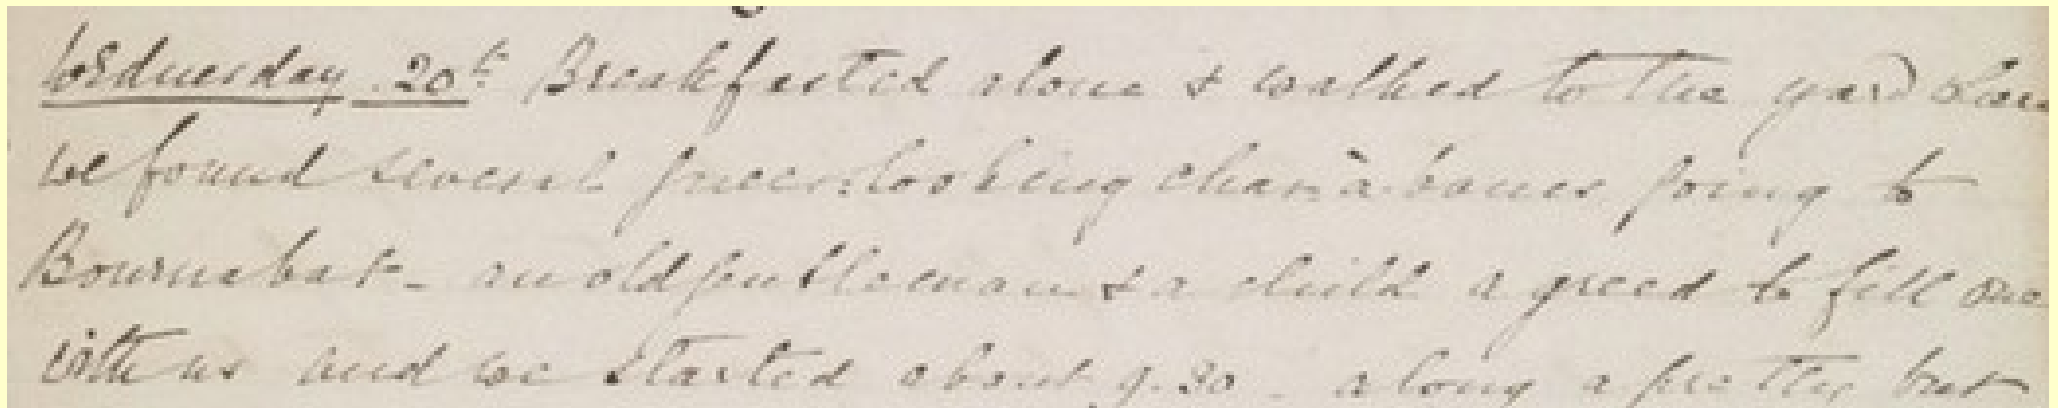 Wednesday 20th Breakfasted alone & walked to the yard where
we found several queer looking char à bancs going to
an old gentleman & a child agreed to fill one
with us and we started about 9.30 - along a pretty but